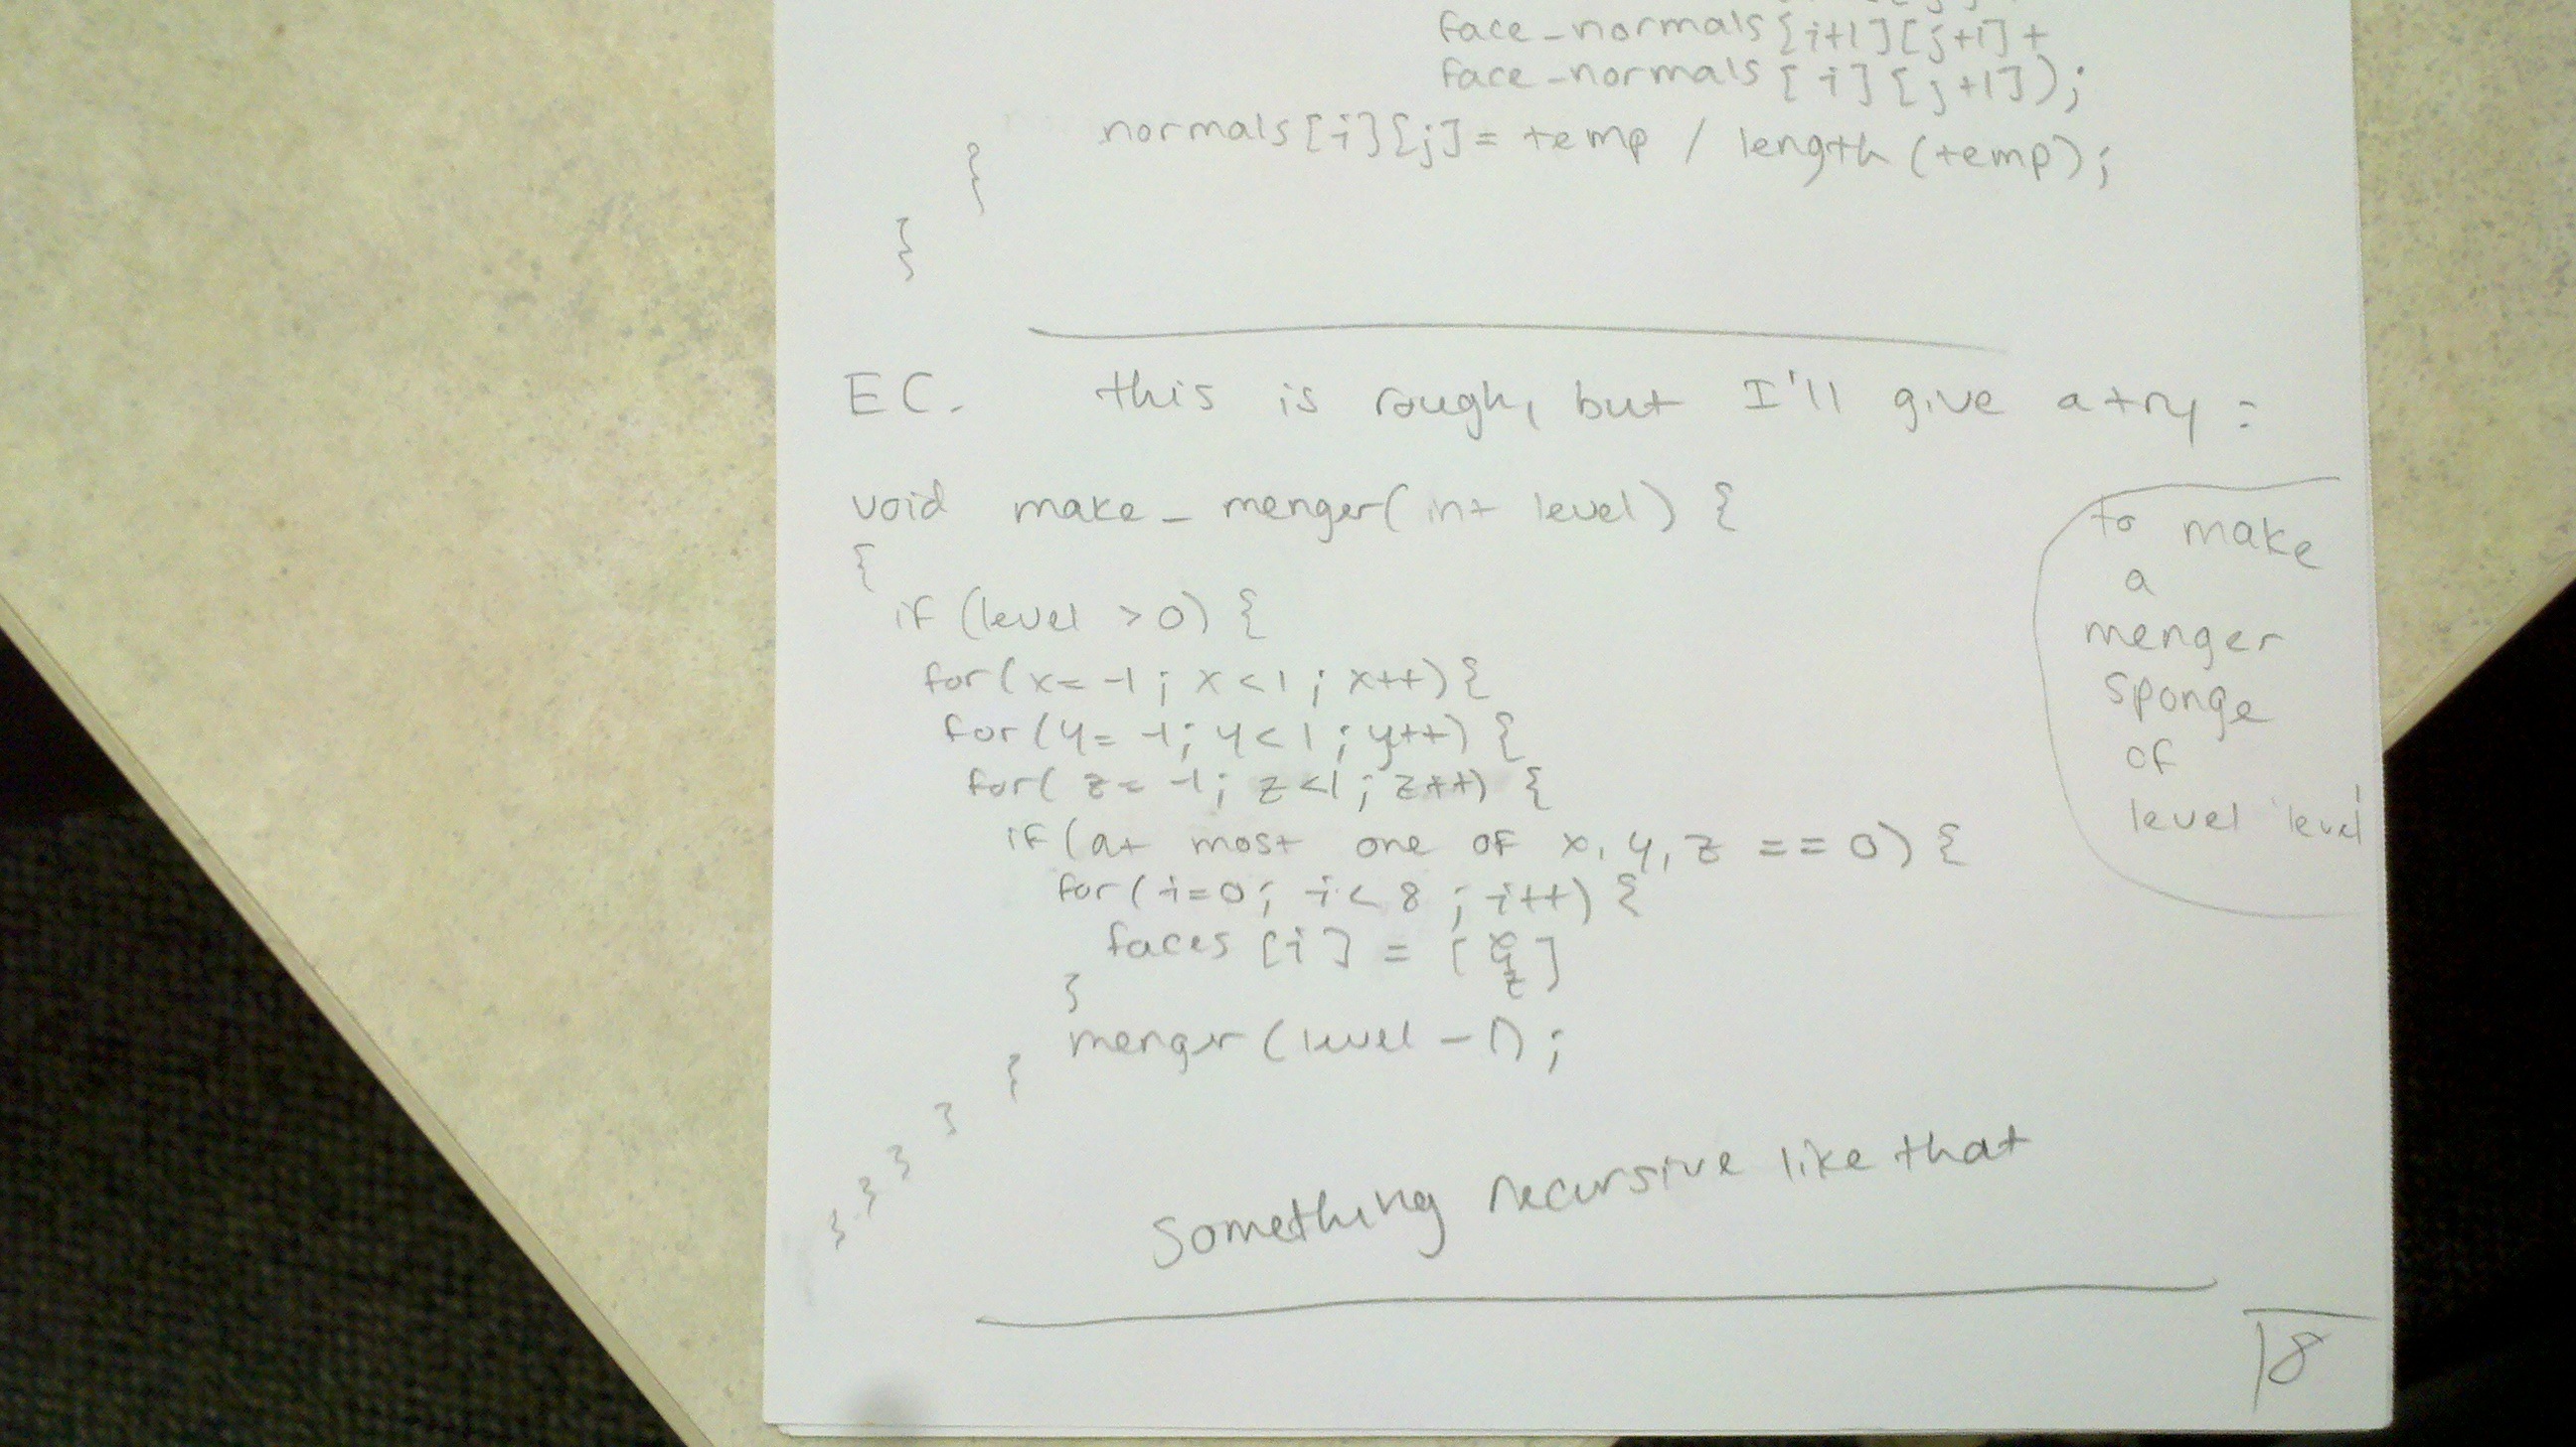 face_normals[i+1][j+1]+
face_normals[i][j+1]);
normals[i][j]= temp / length (temp);
}
}
EC. this is rough, but I'll give a try:
void make_menger(int level) {
{
if (level > 0) {
for(x= -1; x<1; x++){
for(y= -1; y<1; y++) {
for( z= -1; z<1; z++) {
if (at most one of x, y, z == 0) {
for(i=0; i<8; i++) {
faces [i] = [x
y
z]
}
menger (level - 1);
}
}
}
}
}
to make
a
menger
sponge
of
level 'level'
Something recursive like that
8